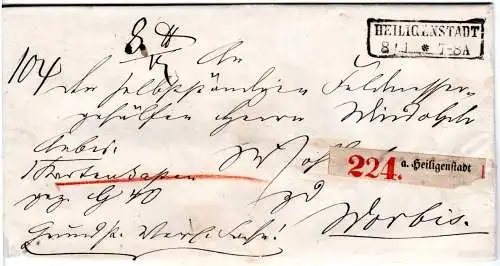 HEILIGENSTADT
8 1 * 7-8A
104
An
den selbstständigen Feldmesser
gehülfen Herrn Windolph
Wohl
224. a. Heiligenstadt
1 Kartenkasten
gez. G 40
zu
Worbis.